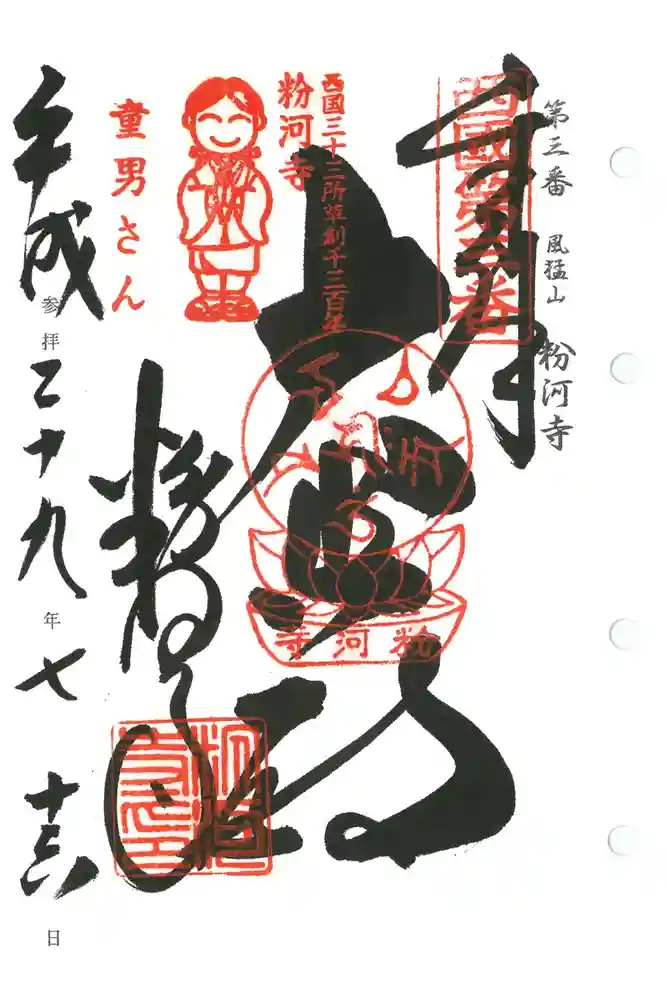 第三番 風猛山 粉河寺
奉拝
西國第三番
大悲殿
西国三十三所草創千三百年
粉河寺
童男さん
粉河寺
粉河寺
粉河寺印
平成 参拝 二十九 年 七 十六 日